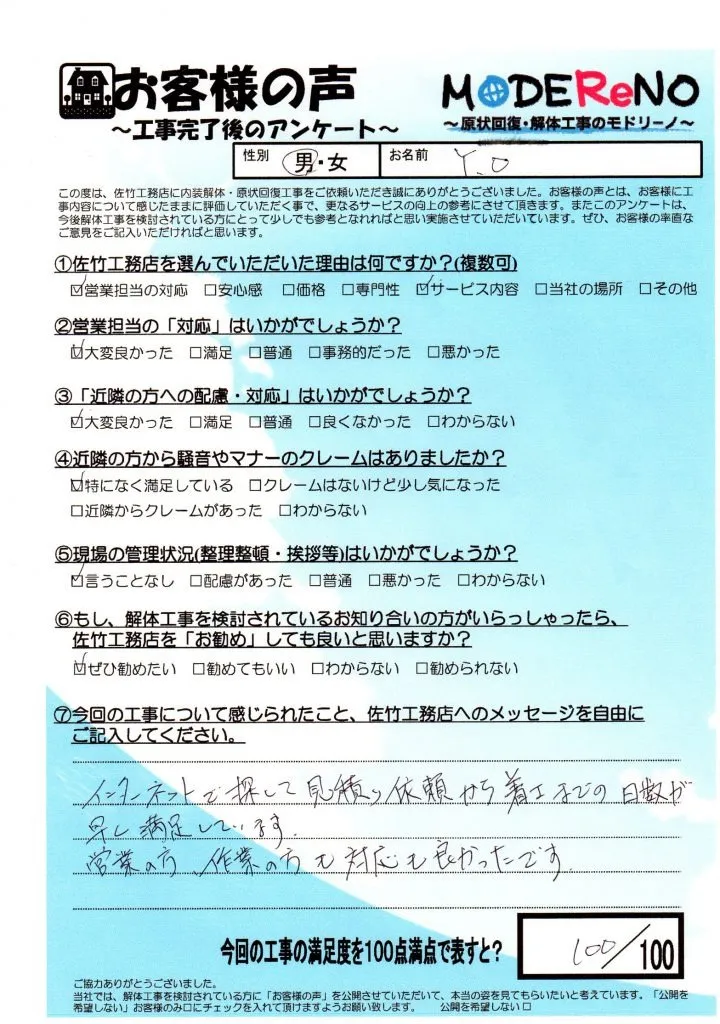 お客様の声
～工事完了後のアンケート～
MODEReNO
～原状回復・解体工事のモドリーノ～
性別 男・女 お名前 Y.O
この度は、佐竹工務店に内装解体・原状回復工事をご依頼いただき誠にありがとうございました。お客様の声とは、お客様に工
事内容について感じたままに評価していただく事で、更なるサービスの向上の参考にさせて頂きます。またこのアンケートは、
今後解体工事を検討されている方にとって少しでも参考となれればと思い実施させていただいています。ぜひ、お客様の率直な
ご意見をご記入いただければと思います。
①佐竹工務店を選んでいただいた理由は何ですか？(複数可)
☑営業担当の対応 □安心感 □価格 □専門性 ☑サービス内容 □当社の場所 □その他
②営業担当の「対応」はいかがでしょうか？
☑大変良かった □満足 □普通 □事務的だった □悪かった
③「近隣の方への配慮・対応」はいかがでしょうか？
☑大変良かった □満足 □普通 □良くなかった □わからない
④近隣の方から騒音やマナーのクレームはありましたか？
☑特になく満足している □クレームはないけど少し気になった
□近隣からクレームがあった □わからない
⑤現場の管理状況(整理整頓・挨拶等)はいかがでしょうか？
☑言うことなし □配慮があった □普通 □悪かった □わからない
⑥もし、解体工事を検討されているお知り合いの方がいらっしゃったら、
佐竹工務店を「お勧め」しても良いと思いますか？
☑ぜひ勧めたい □勧めてもいい □わからない □勧められない
⑦今回の工事について感じられたこと、佐竹工務店へのメッセージを自由に
ご記入してください。
インターネットで探して見積り依頼から着工までの日数が
早く満足しています。
営業の方、作業の方も対応も良かったです。
今回の工事の満足度を100点満点で表すと？ 100/100
ご協力ありがとうございました。
当社では、解体工事を検討されている方に「お客様の声」を公開させていただいて、本当の姿を見てもらいたいと考えています。「公開を
希望しない」お客様のみ□にチェックを入れて頂けますようお願い致します。 公開を希望しない□